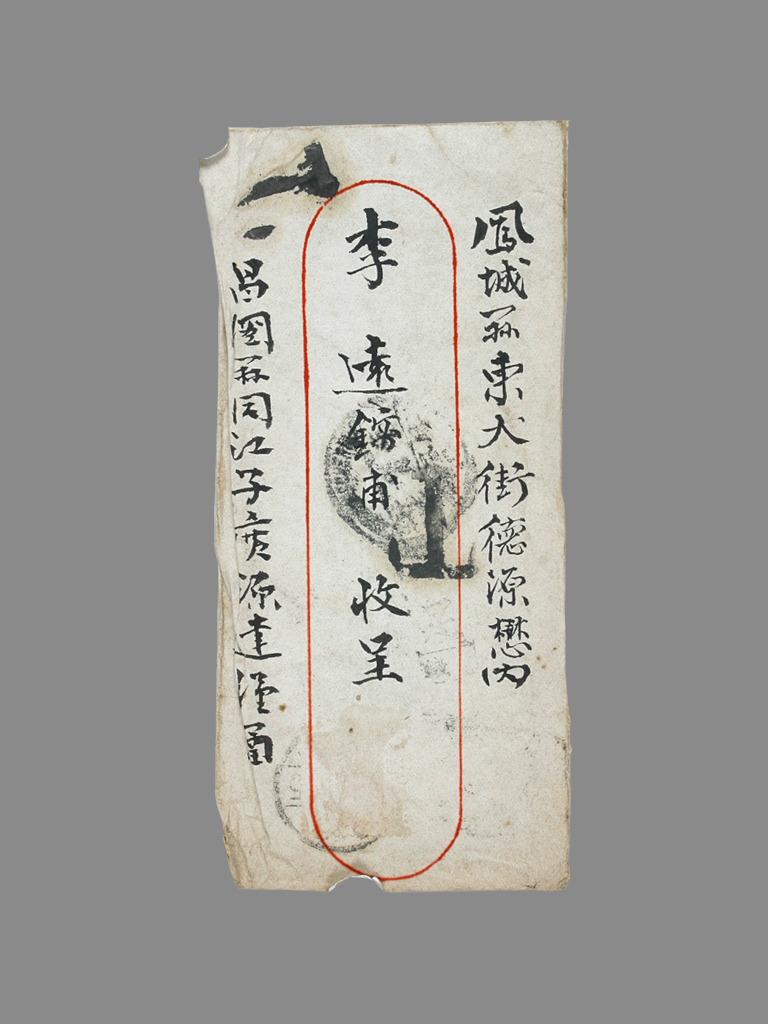 鳳城縣東大街德源懋內
李遠錞甫 收呈
昌圖縣同江子廣源達緘